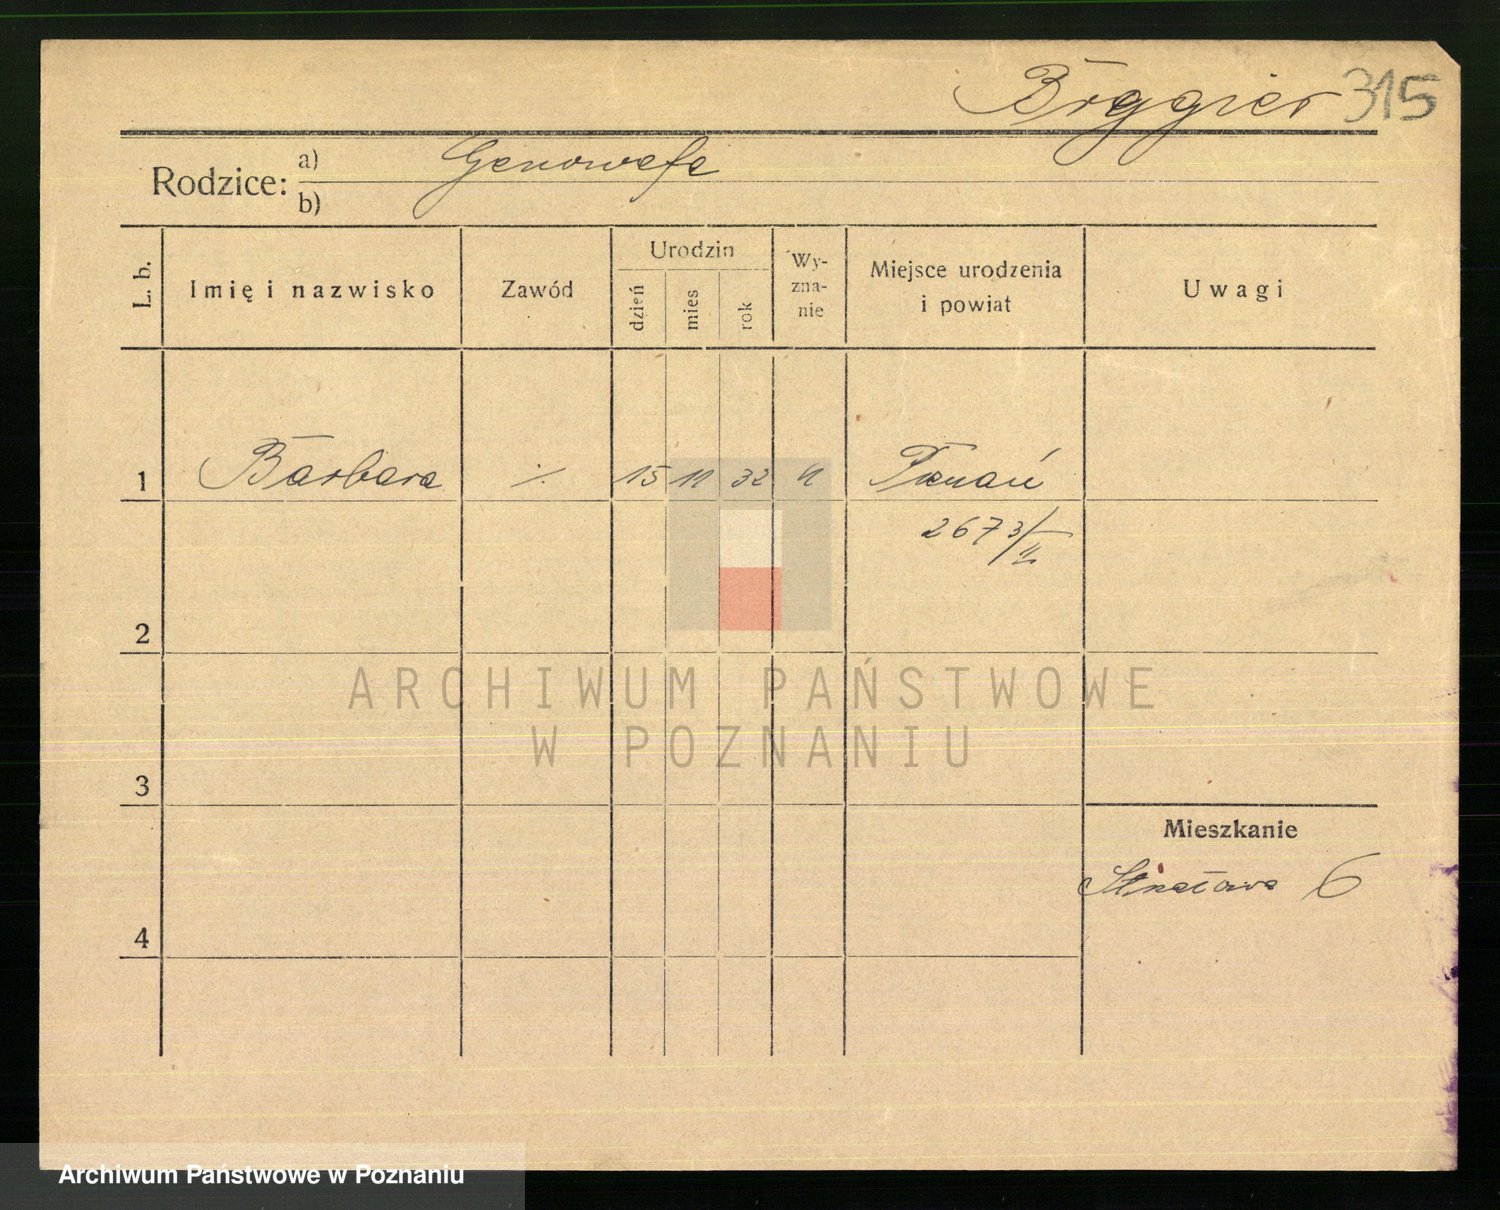 Bryggier 315
Rodzice: a) Genowefa
b)
L. b.
Imię i nazwisko
Zawód
Urodzin
dzień
mies
rok
Wy-
zna-
nie
Miejsce urodzenia
i powiat
Uwagi
1 Barbara ·/· 15 11 32 Poznań
2673/II
2
3
4
Mieszkanie
6
ARCHIWUM PAŃSTWOWE
W POZNANIU
Archiwum Państwowe w Poznaniu